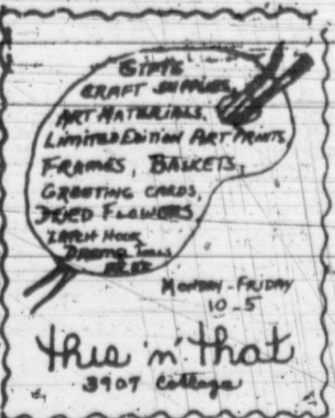 GIFTS
CRAFT SUPPLIES,
ART MATERIALS,
LIMITED EDITION ART PRINTS,
FRAMES, BASKETS,
GREETING CARDS,
DRIED FLOWERS,
LATCH HOOK,
TOOLS
MONDAY - FRIDAY
10 - 5
this 'n' that
3907 College